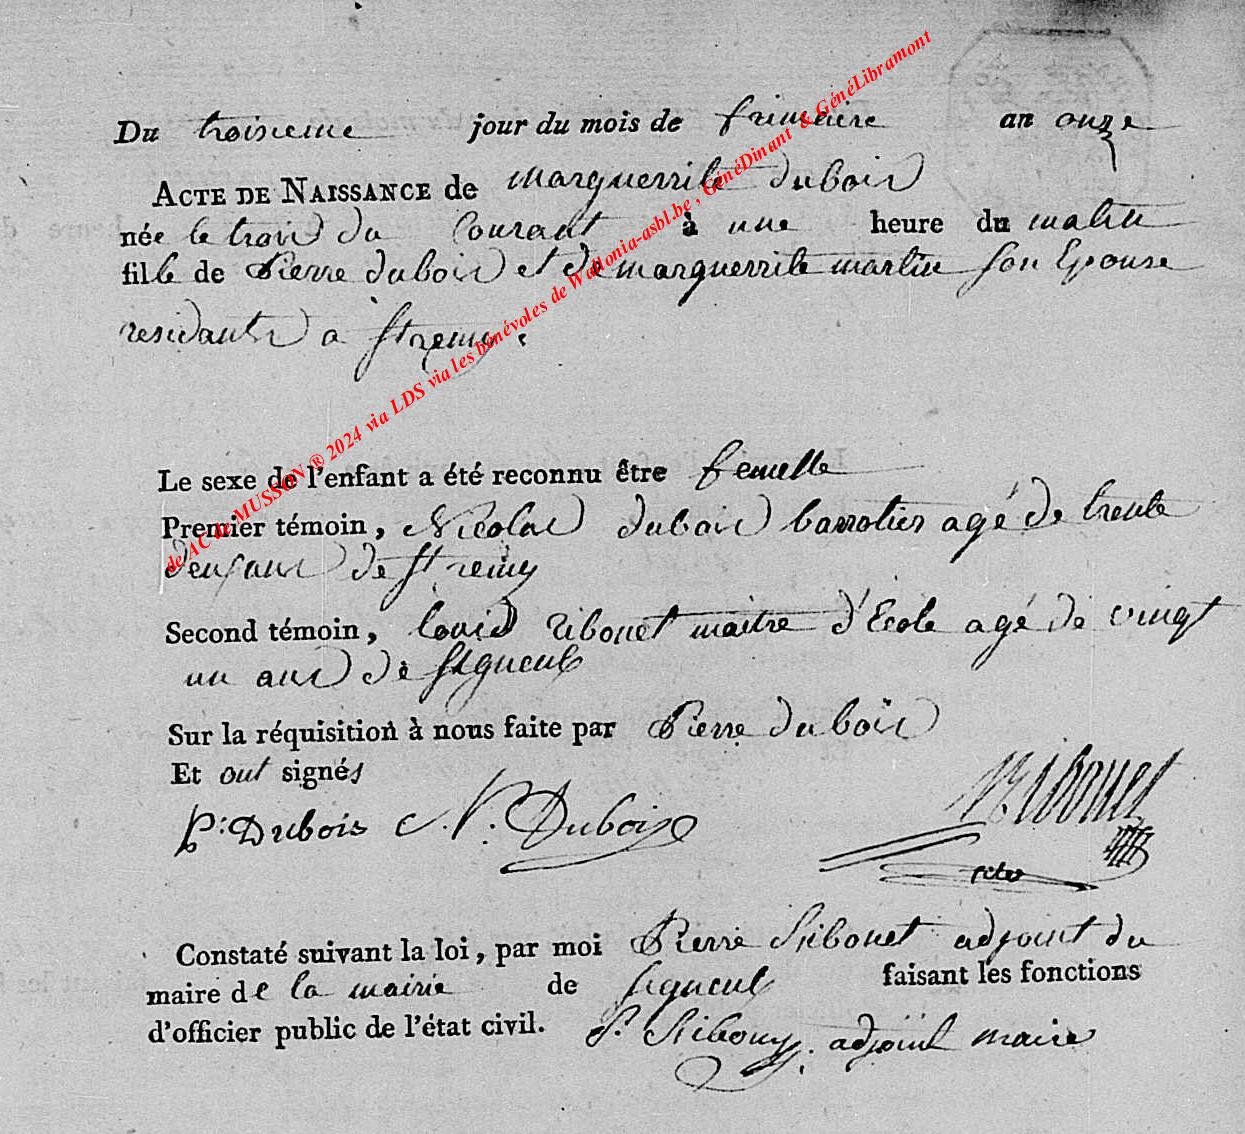 Du troisieme jour du mois de frimaire an onze
ACTE DE NAISSANCE de marguerrite dubois
née le trois du Courant à une heure du matin
fille de Pierre dubois et de marguerrite martin son Epouse
residants a St remy.
Le sexe de l'enfant a été reconnu être femelle
Premier témoin, Nicolas dubois agé de trente
deux ans de St remy
Second témoin, louis Ribonet maitre d'Ecole agé de vingt
un ans de Signeulx
Sur la réquisition à nous faite par Pierre dubois
Et ont signés
P: DUBOis N. Dubois Ribonet
Constaté suivant la loi, par moi Pierre Ribonet adjoint du
maire de la mairie de Signeulx faisant les fonctions
d'officier public de l'état civil. P. adjoint maire
de ACte MUSSON ® 2024 via LDS via les bénévoles de Wallonia-asbl.be, GénéDinant & GénéLibramont